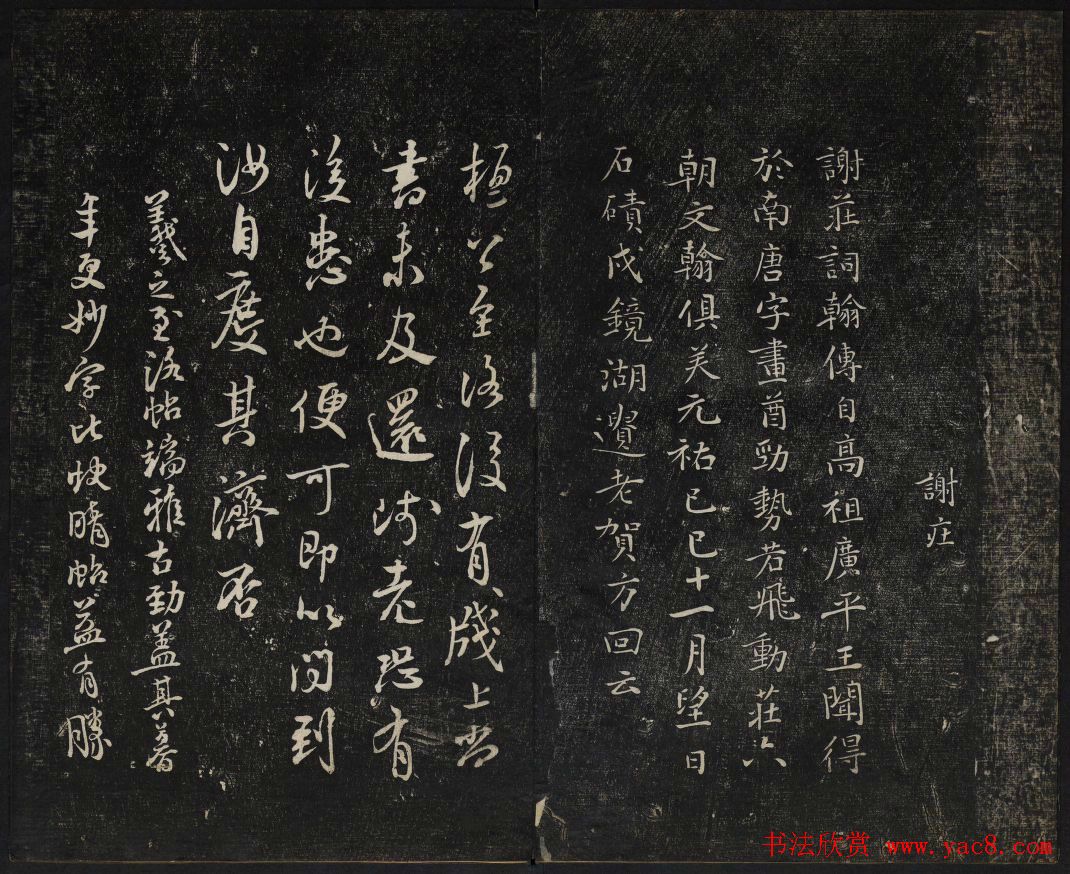 謝庄
謝莊詞翰傳自高祖廣平王聞得
於南唐字畫酋勁勢若飛動莊六
朝文翰俱美元祐己巳十一月望日
石磧戍鏡湖遺老賀方回云
桓公至洛後有牋上尚
書未及還諸老恐有
後患也便可即以問到
汝自度其濟否
羲之至洛帖端雅古勁蓋其暮
年更妙字比快晴帖益有勝
书法欣赏 www.yac8.com